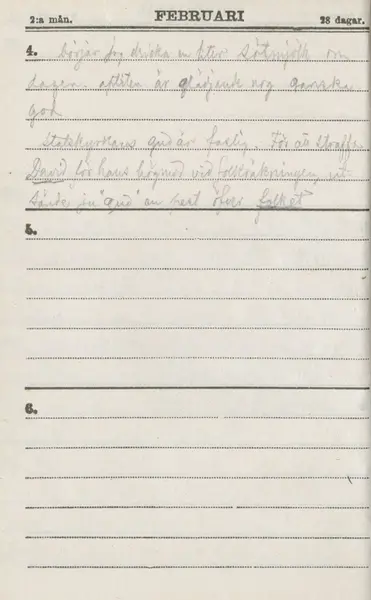 2:a mån.
FEBRUARI
28 dagar.
4. börjar jag dricka en liter sötmjölk om
dagen. aptiten är glädjande nog ganska
god
Statskyrkans gud är farlig. För att straffa
David för hans högmod vid folkräkningen ut-
sände ju "gud" en pest öfver folket
5.
6.